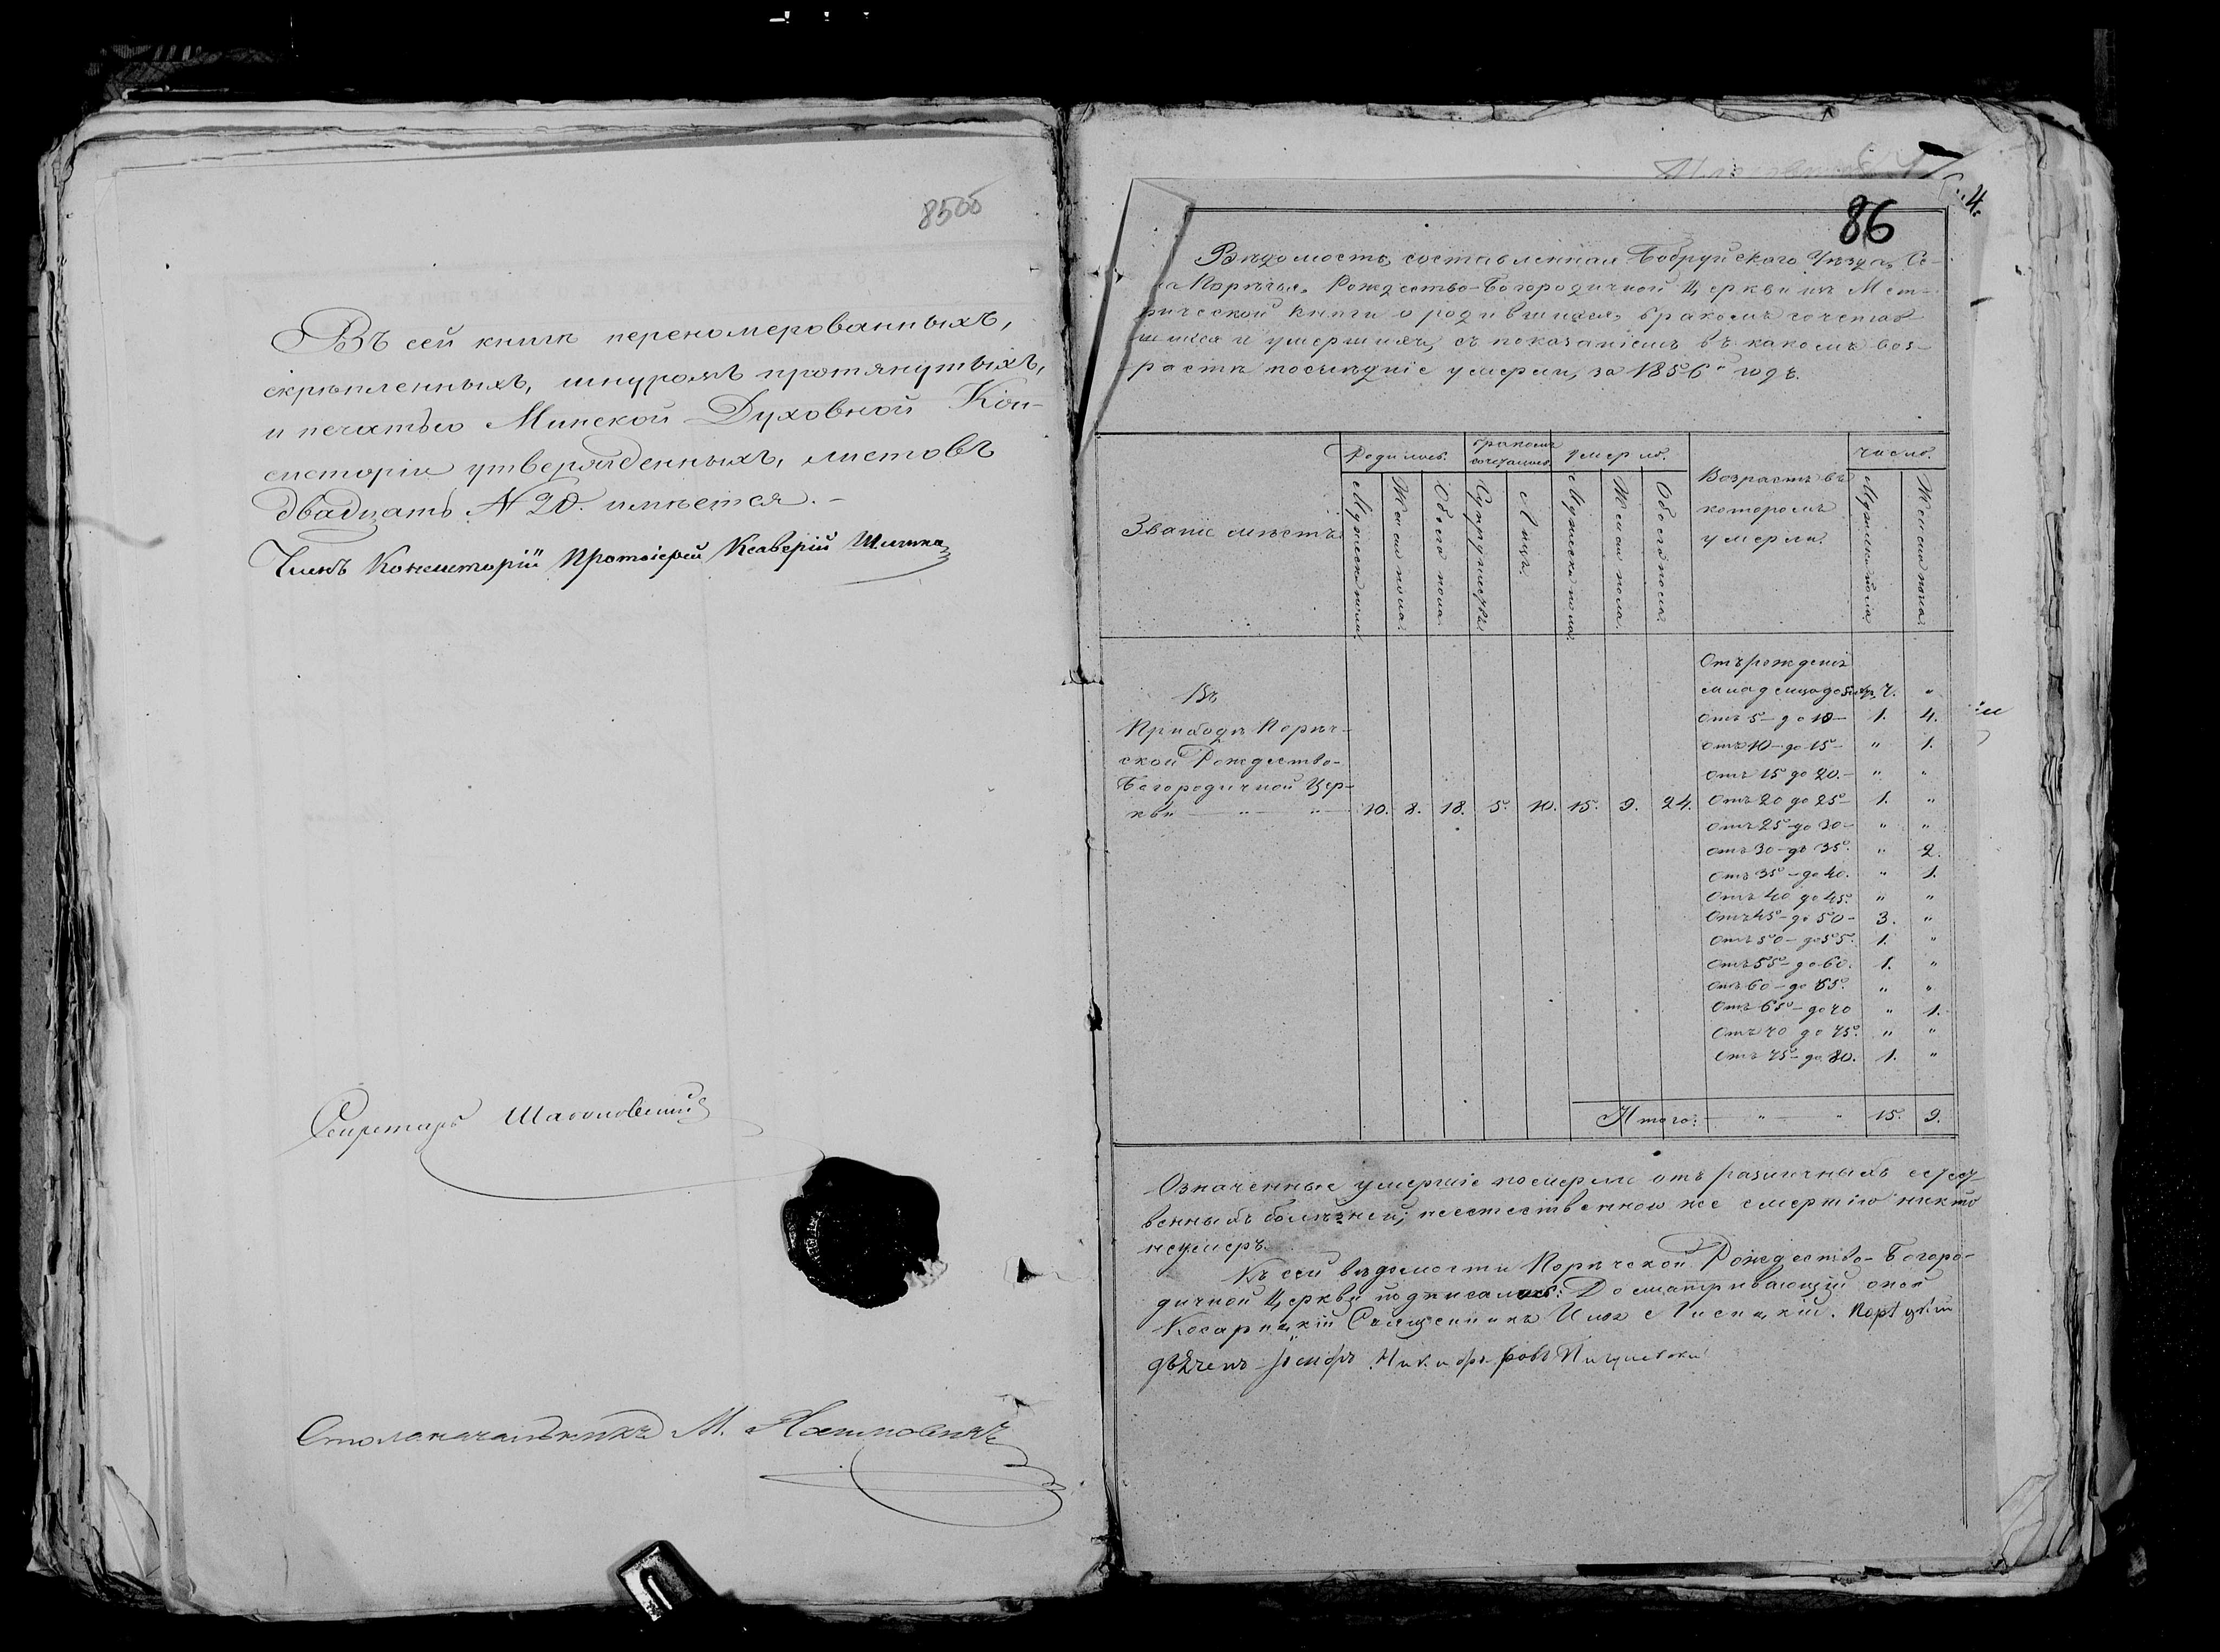 8500
Въ сей книгѣ переномерованныхъ,
скрѣпленныхъ, шнуромъ протянутыхъ,
и печатью Минской Духовной Кон-
систоріи утвержденныхъ, листовъ
двадцать № 20. имѣется. –
Членъ Консисторіи Протоіерей Ксаверій
Секретарь
Столоначальникъ М.
86
4.
Вѣдомость, составленная Бобруйскаго Уѣзда, Се-
ла Порѣчья, Рождество-Богородичной Церкви изъ Мет-
рической книги о родившихся, бракомъ сочетав
шихся и умершихъ, съ показаніемъ въ какомъ воз-
растѣ послѣдніе умерли, за 1856й годъ.
Званіе мѣстъ
Родилось.
Мужеска пола
Женска пола.
Обоего пола
бракомъ сочеталось.
Супружествъ
Лицъ.
Умерло.
Мужеска пола
Женска пола.
Обоего пола.
Возрастъ въ
которомъ
умерли.
Число.
Мужеска пола
Женска пола
Въ
Приходѣ Порѣч-
ской Рождество-
Богородичной Цер-
кви — " — " — 10. 8. 18. 5. 10. 15. 9. 24.
Отъ рожденія
младенца до 5 7. "
Отъ 5 – до 10 – 1. 4.
Отъ 10 – до 15 – " 1.
Отъ 15 до 20. – " "
Отъ 20 до 25 – 1. "
Отъ 25 – до 30 – " "
Отъ 30 – до 35. " 2.
Отъ 35 – до 40. " 1.
Отъ 40 до 45. " "
Отъ 45 – до 50 – 3. "
Отъ 50 – до 55. 1. "
Отъ 55 – до 60. 1. "
Отъ 60 – до 65. " "
Отъ 65 – до 70 " 1.
Отъ 70 до 75. " "
Отъ 75 – до 80. 1. "
Итого: — " — " 15. 9.
Означенные умершіе померли отъ различныхъ естест-
венныхъ болѣзней; неестественною же смертію никто
неумеръ.
Къ сей вѣдомости Порѣчской Рождество-Богоро-
дичной Церкви подписались: Досматривающій оной
Косарицкій Священникъ Илья Лисицкій.